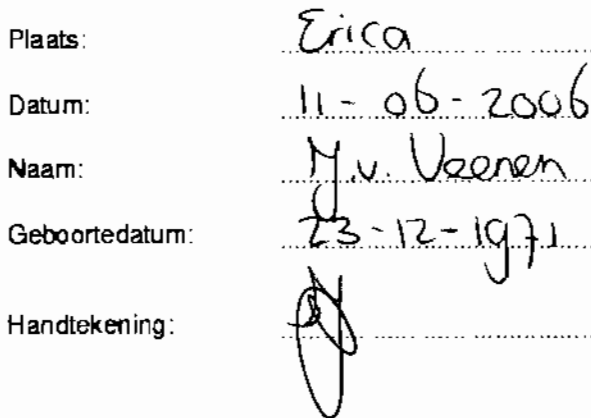 Plaats: Erica
Datum: 11-06-2006
Naam: M.v. Veenen
Geboortedatum: 23-12-1971
Handtekening: